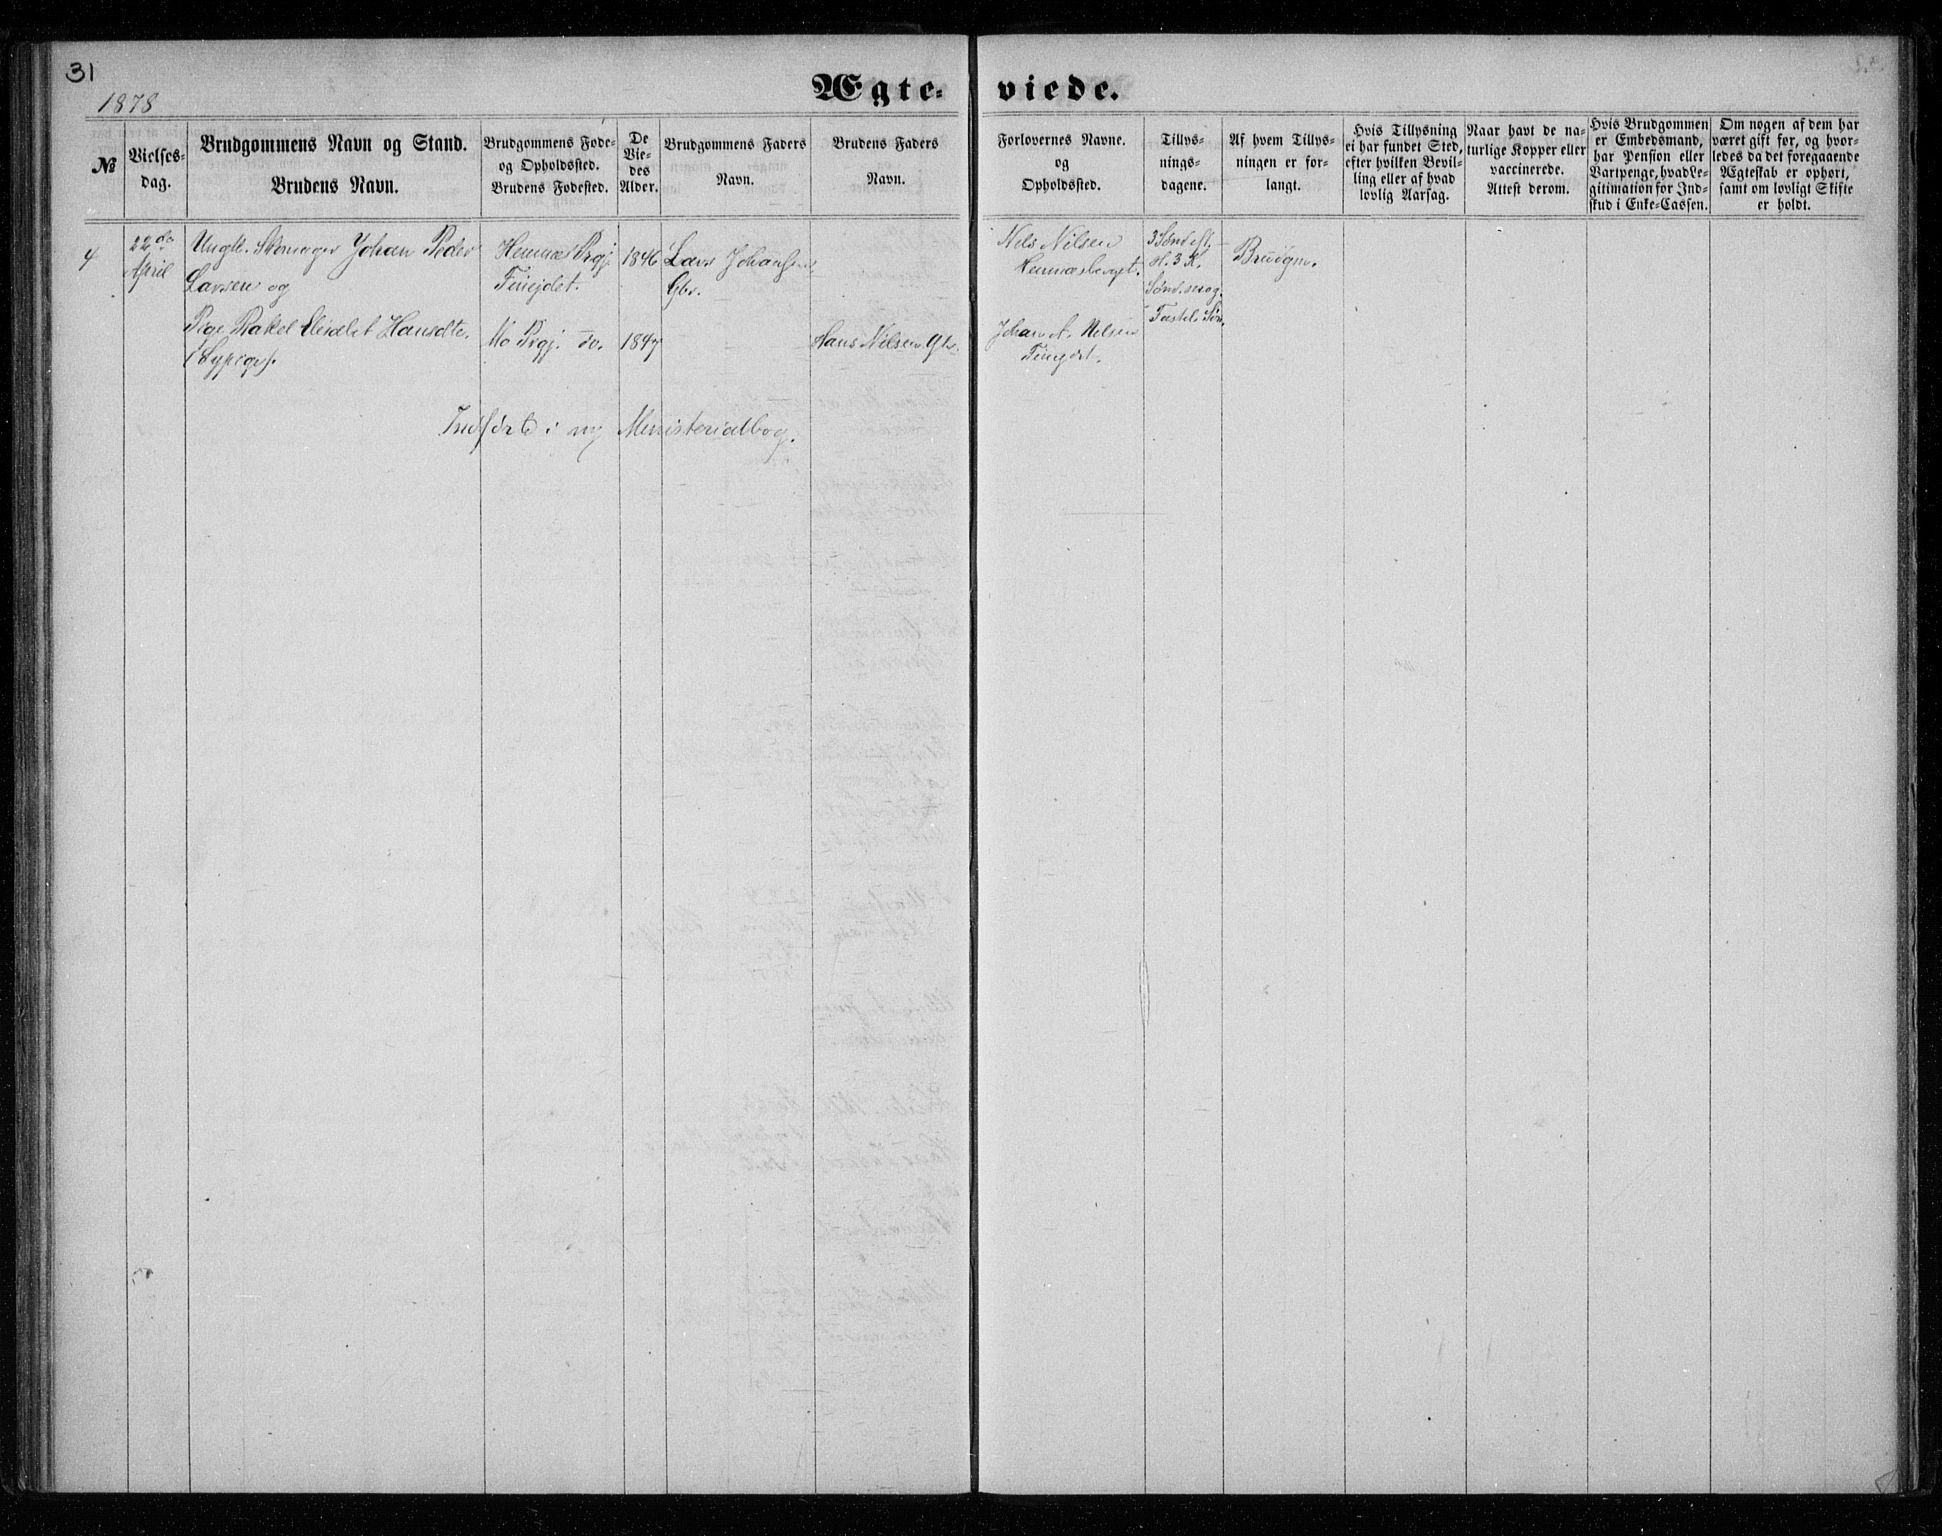 31
1878
Ægte=
viede.
№
Vielses=
dag.
Brudgommens Navn og Stand.
Brudens Navn.
Brudgommens Føde=
og Opholdssted.
Brudens Fødested.
De
Vie=
des
Alder.
Brudgommens Faders
Navn.
Brudens Faders
Navn.
Forlovernes Navne.
og
Opholdssted.
Tillys=
nings=
dagene.
Af hvem Tillys=
ningen er for=
langt.
Hvis Tillysning
ei har fundet Sted,
efter hvilken Bevil=
ling eller af hvad
lovlig Aarsag.
Naar havt de na=
turlige Kopper eller
vaccinerede.
Attest derom.
Hvis Brudgommen
er Embedsmand,
har Pension eller
Vartpenge, hvad Le=
gitimation for Ind=
skud i Enke=Cassen.
Om nogen af dem har
været gift før, og hvor=
ledes da det foregaaende
Ægteskab er ophørt,
samt om lovligt Skifte
er holdt.
4
22de
April
Ungk. Skomager Johan Peder
Larsen og
Pige Rakel Elisabet Hansdtr.
Hemnæs Prgj.
Mo Prgj. do.
1846
1847
Lars Johansen
Gbr.
Hans Nilsen Gbr.
Nils Nilsen
Hemnæsberget.
Johan A. Nilsen
3 Sønd. eft.
H. 3 K.
Fastel. Søn.
Brudgm.
Indført i ny Ministerialbog.